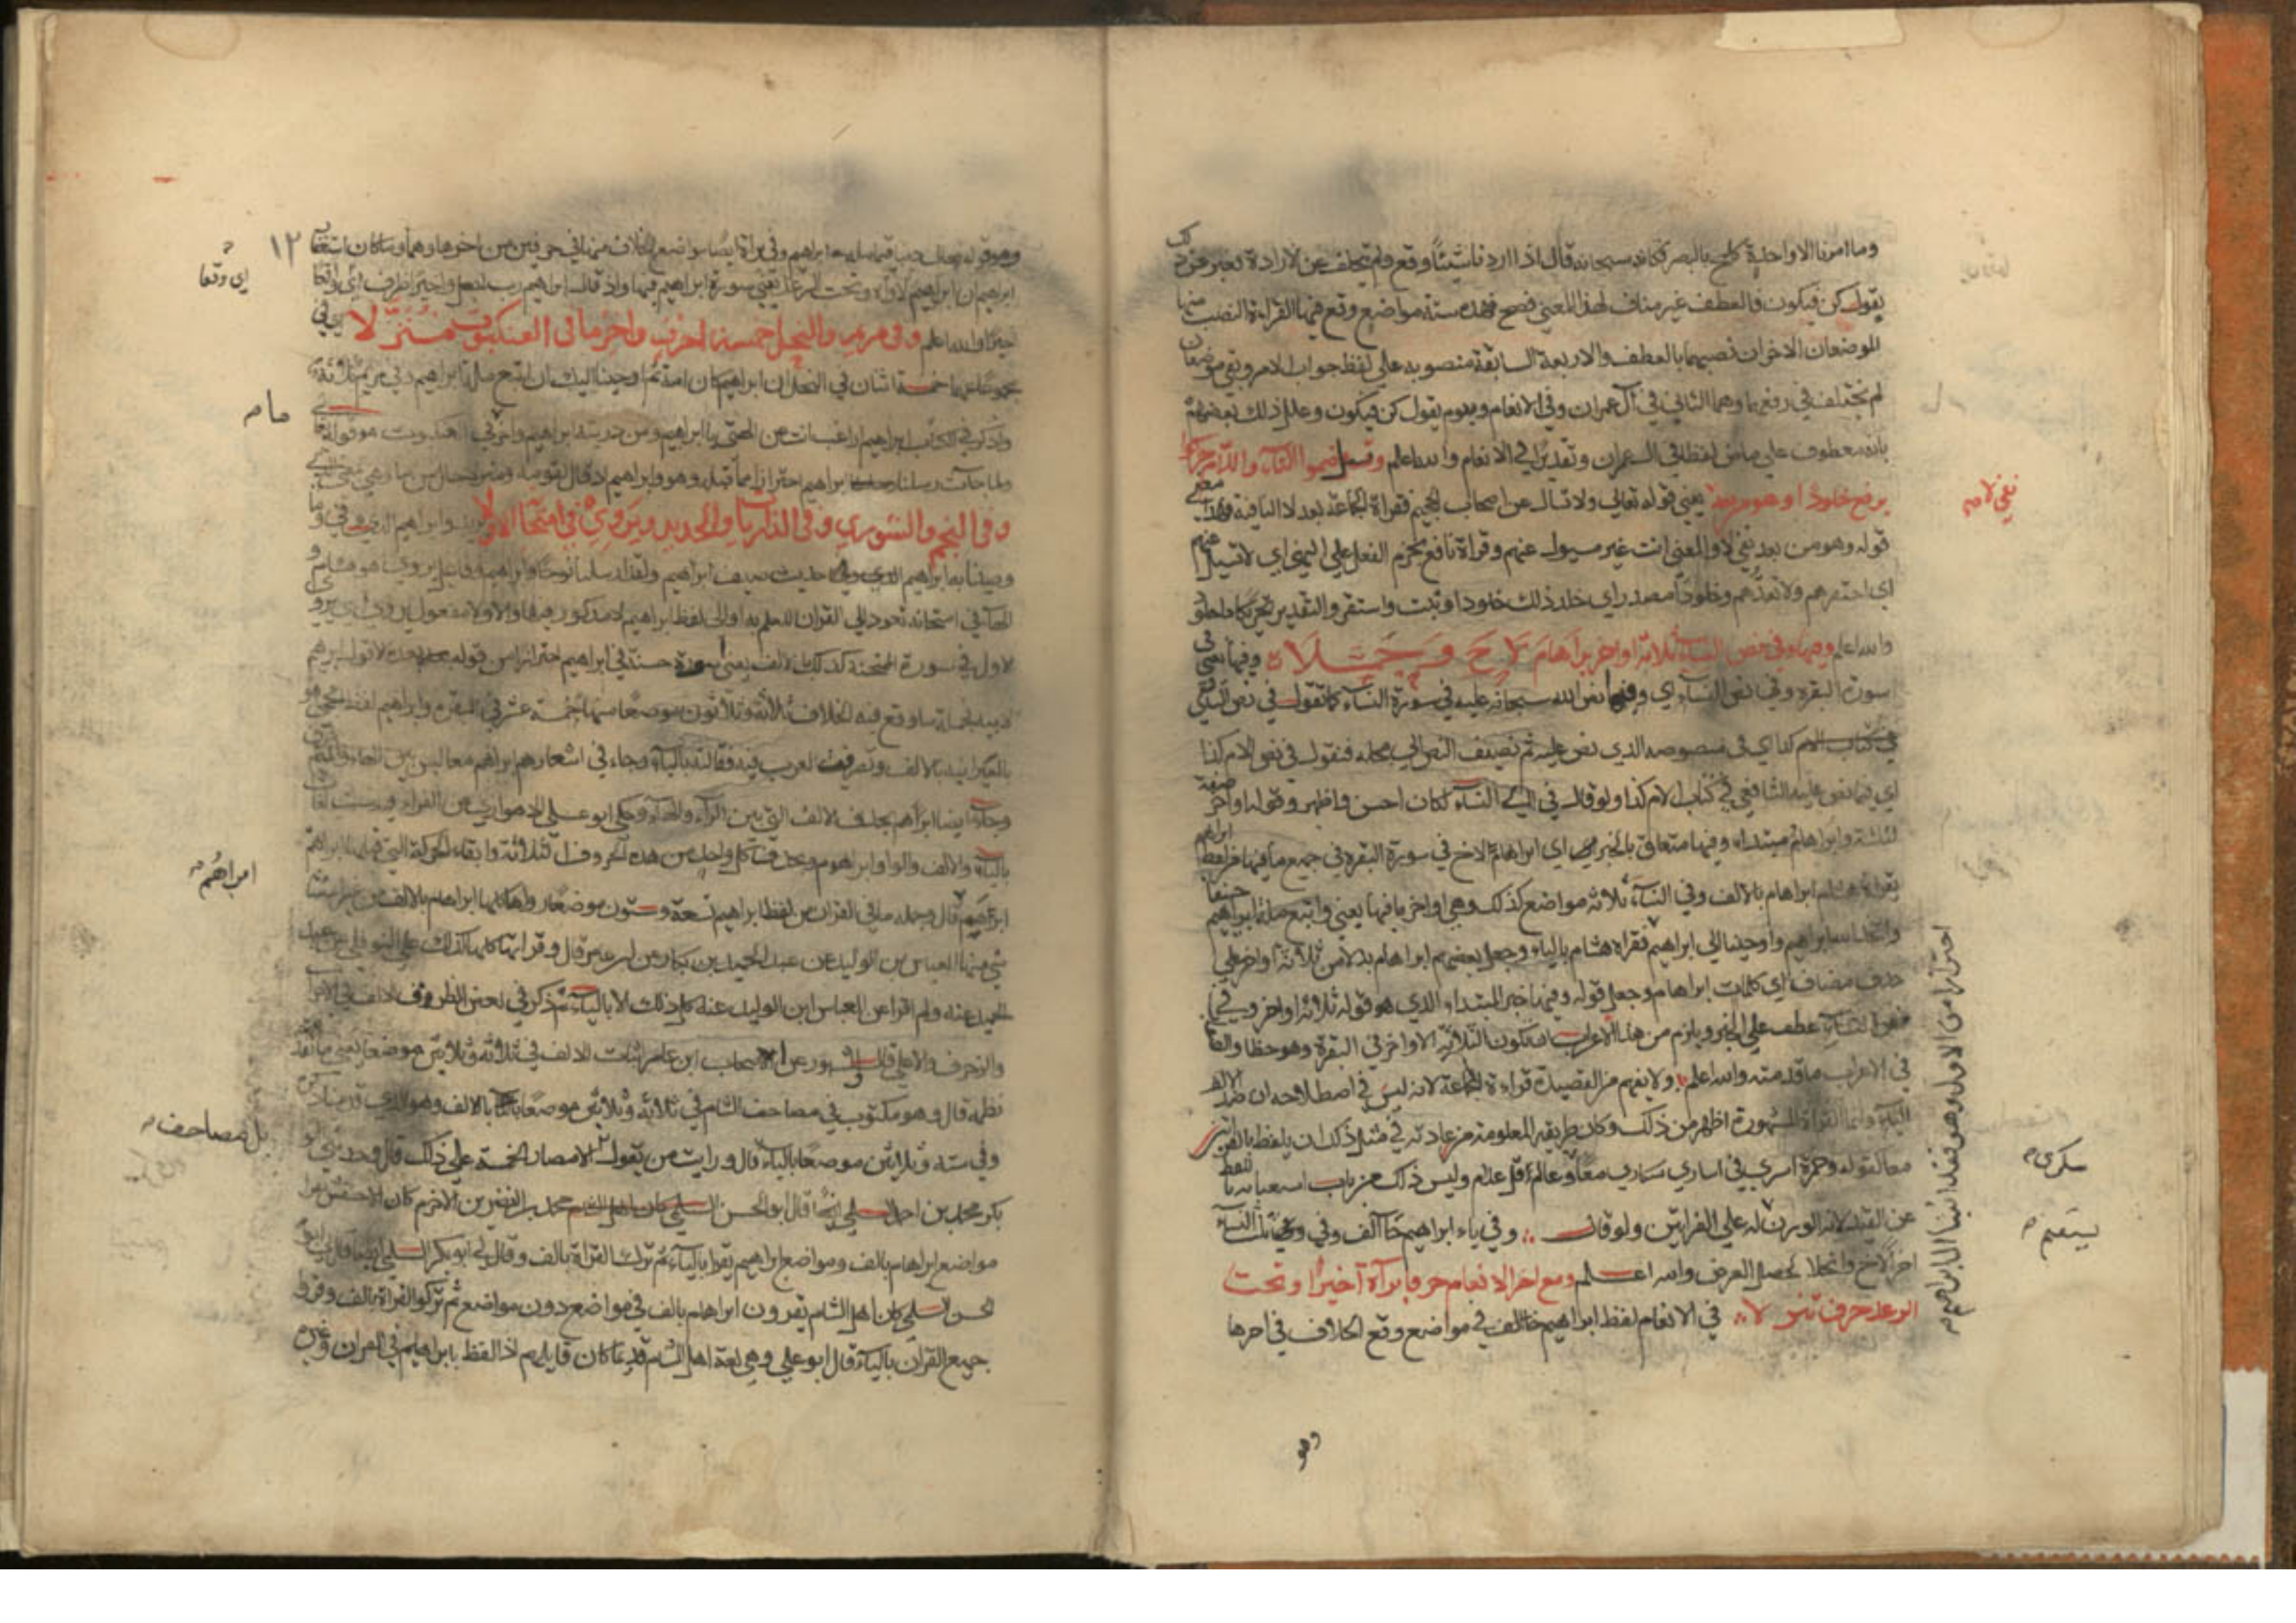 وما امرنا الا واحدة كلمح بالبصر فكانه سبحانه قال اذا اردنا شيئا وقع ولم يتخلف عن الارادة فعبر عن ذلك
بقوله كن فيكون فالعطف غير مناف لهذا المعنى فصح فهذه ستة مواضع وقع فيها القراءة النصب منها
الموضعان الاخران نصبهما بالعطف والاربعة السابقة منصوبة على لفظ جواب الامر وبقي موضعان
لم يختلف في رفعهما وهما الثاني في آل عمران وفي الانعام ويوم يقول كن فيكون وعلل ذلك بعضهم
بانه معطوف على ماض لفظا في آل عمران وتقديرا في الانعام والله اعلم وتسئل ضموا التاء واللام حركوا
برفع خلودا وهو من بعد يعني قوله تعالى ولا تسال عن اصحاب الجحيم فقراءة الجماعة بعد لا النافية فهذا معنى
قوله وهو من بعد نفي لا والمعنى انت غير مسول عنهم وقراة نافع بجزم الفعل على النهي اي لا تسئل عنهم
اي احتقرهم ولا تعدهم وخلودا مصدر اي خلد ذلك خلودا وثبت واستقر والتقدير تحريكا ذا خلود
والله اعلم وفيها وفي نص النساء ثلاثة اواخر ابراهام لاح وجملا وفيها يعني في
سورة البقرة وفي نص النساء اي وفيما نص الله سبحانه عليه في سورة النساء كما تقول في نص الشافعي
في كتاب الام كذا اي في منصوصه الذي نص عليه ثم تضيف النص الى محله فتقول في نص الام كذا
اي فيما نص عليه الشافعي في كتاب الام كذا ولو قال في آي النساء لكان احسن واظهر وقوله اواخر صفة
لثلثة وابراهام مبتداء وفيها متعلق بالخبر اي ابراهام لاح في سورة البقرة في جميع ما فيها من لفظ ابراهيم
يقراه هشام ابراهام بالالف وفي النساء ثلاثة مواضع كذلك وهي اواخر ما فيها يعني واتبع ملة ابراهيم حنيفا
واتخذ الله ابراهيم واوحينا الى ابراهيم فقراه هشام بالياء وجعل بعضهم ابراهام بدلا من ثلاثة اواخر على
حذف مضاف اي كلمات ابراهام وجعل قوله وفيها خبر المبتداء الذي هو قوله ثلاثة اواخر وفي
نص النساء عطف على الخبر ويلزم من هذا الاعراب ان تكون الثلاثة الاواخر في البقرة وهو خطا والصواب
في الاعراب ما قدمته والله اعلم ولا يفهم من القصيدة قراءة الجماعة لانه ليس في اصطلاحه ان ضد الالف
الياء وانما القراءة المشهورة اظهر من ذلك وكان طريقه المعلومة من عادته في مثل ذلك ان يلفظ بالقراتين
معا كقوله وحمزة اسرى في اسارى سكارى معا وعالم قل علام وليس ذلك من باب استغنائه باللفظ
عن القيد لانه الوزن له على القراتين ولو قال وفي ياء ابراهيم جا الف وفي ثلاث النساء
اخرا لاح وانجلا لحصل الغرض والله اعلم ومع اخر الانعام حرفا براءة اخيرا وتحت
الرعد حرف تنزلا في الانعام لفظ ابراهيم خالف في مواضع وقع الخلاف في اخرها
نفي لا
سكرى
يستقيم
احترازا من الاول وهو فقد اتينا آل ابراهيم
وهو
١٢
وهو قوله تعالى دينا قيما ملة ابراهيم وفي براءة ايضا مواضع الخلاف منها في حرفين من اخرها وهما وما كان استغفار
ابراهيم ان ابراهيم لاواه وتحت الرعد يعني سورة ابراهيم فيها واذ قال ابراهيم رب اجعل واخيرا ظرف اي واقعا
اخيرا والله اعلم وفي مريم والنحل خمسة احرف واخر ما في العنكبوت منزلا اي في
مجموعهما خمسة اثنان في النحل ان ابراهيم كان امة ثم اوحينا اليك ان اتبع ملة ابراهيم وفي مريم ثلاثة
واذكر في الكتاب ابراهيم اراغب انت عن الهتي يا ابراهيم ومن ذرية ابراهيم واخر في العنكبوت هو قوله تعالى
ولما جاءت رسلنا ابراهيم احترازا مما قبله وهو وابراهيم اذ قال لقومه
وفي النجم والشورى وفي الذاريات والحديد ويروي في امتحانه الاولا يريد وابراهيم الذي وفى وما
وصينا به ابراهيم حديث ضيف ابراهيم ولقد ارسلنا نوحا وابراهيم وفاعل يروي هو هشام و
الهاء في امتحانه تعود الى القران للعلم به او الى لفظ ابراهيم لانه مذكور فيها والاولا مفعول يروي اي يروي
الاول في سورة الممتحنة كذلك بالالف يعني اسوة حسنة في ابراهيم احترازا من قوله بعده الا قول ابراهيم
لابيه فجملة ما وقع فيه الخلاف ثلاثة وثلاثون موضعا منها خمسة عشر في البقرة وابراهيم لفظ اعجمي هو
بالعبرانية بالالف وتصرفت العرب فيه فقالته بالياء وجاء في اشعارهم ابراهم معا ليس بين الهاء والميم
وجاء ايضا ابراهم بحذف الالف التي بين الراء والهاء وحكى ابو علي الاهوازي عن الفراء فيه ست لغات
بالياء والالف والواو ابراهوم وبحذف كل واحد من هذه الحروف الثلاثة وابقاء الحركة التي قبلها ابراهم
ابراهيم قال وجملة ما في القران من لفظ ابراهيم تسعة وستون موضعا رواها كلها ابراهام بالالف من غير استثناء
شي منها العباس بن الوليد عن عبد الحميد بن بكار عن ابن عامر قال وقراتها كلها كذلك على النوفلي عن عبد
الحميد عنه ولم اقرا عن العباس ابن الوليد عنه كل ذلك الا بالياء ثم ذكر في بعض الطرق الالف في الاحزاب
والزخرف والاعلى قال المشهور عن اصحاب ابن عامر اثبات الالف في ثلاثة وثلاثين موضعا يعني ما تقدم
نظمه قال وهو مكتوب في مصاحف الشام في ثلاثة وثلاثين موضعا بالالف وهو الذي قدمنا ذكره
وفي ستة وثلاثين موضعا بالياء قال ورايت من يقول الامصار الخمسة على ذلك قال وحدثني ابو
بكر محمد بن احمد السلمي قال قال ابو الحسن السلمي كان اهل الشام محمد بن النضر بن الاخرم كان الاخفش يقرا
مواضع ابراهام بالف ومواضع ابراهيم يقرا بالياء ثم ترك القراة بالف وقال لي ابو بكر السلمي ايضا قال لي ابو
الحسن السلمي كان اهل الشام يقرون ابراهام بالف في مواضع دون مواضع ثم تركوا القراة بالف وقروا
جميع القران بالياء قال ابو علي وهي لغة اهل الشام قديما كان قايلهم اذا لفظ بابراهيم في القران وغيره
اي وقعا
ما
ابراهم
بل مصاحف